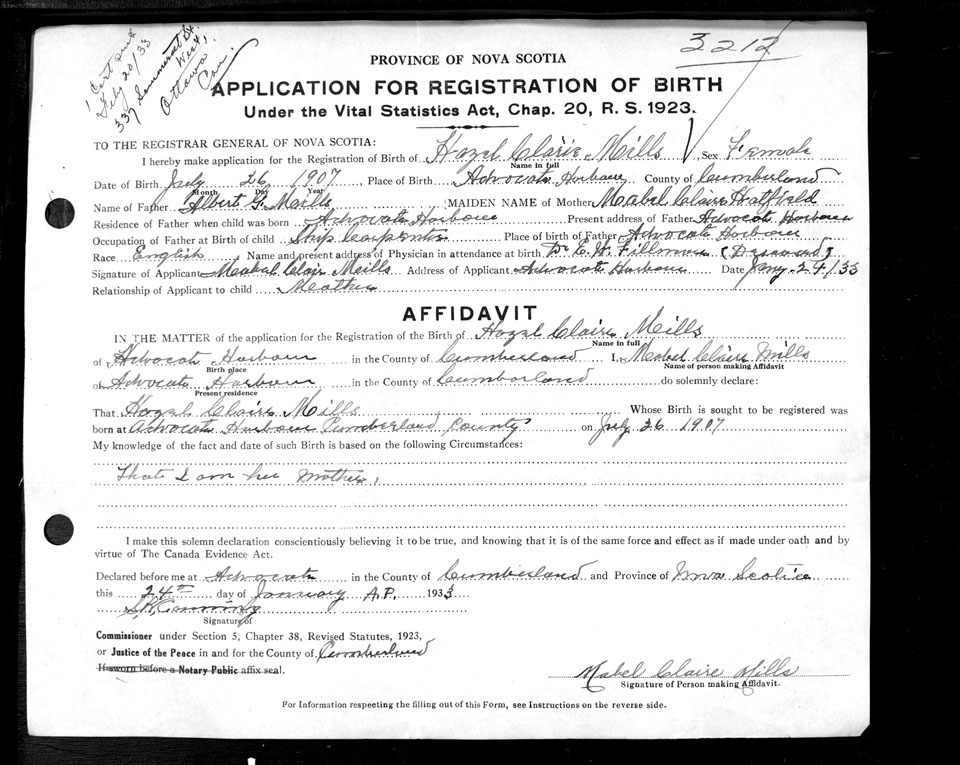 Cert sent
Feby 20/33
337 Sommerset St.
West,
Ottawa
Can.
3212
PROVINCE OF NOVA SCOTIA
APPLICATION FOR REGISTRATION OF BIRTH
Under the Vital Statistics Act, Chap. 20, R. S. 1923.
TO THE REGISTRAR GENERAL OF NOVA SCOTIA:
I hereby make application for the Registration of Birth of Hazel Claire Mills Sex Female
Name in full
Date of Birth July 26 1907, Place of Birth Advocate Harbour County of Cumberland
Month Day Year
Name of Father Albert G. Mills, MAIDEN NAME of Mother Mabel Claire Hatfield
Residence of Father when child was born Advocate Harbour Present address of Father Advocate Harbour
Occupation of Father at Birth of child Ship Carpenter Place of birth of Father Advocate Harbour
Race English, Name and present address of Physician in attendance at birth Dr. E. W. Fillmore (Deceased)
Signature of Applicant Mabel Clair Mills Address of Applicant Advocate Harbour Date Jany. 24/33
Relationship of Applicant to child Mother
AFFIDAVIT
IN THE MATTER of the application for the Registration of the Birth of Hazel Claire Mills
Name in full
of Advocate Harbour in the County of Cumberland I, Mabel Claire Mills
Birth place Name of person making Affidavit
of Advocate Harbour in the County of Cumberland do solemnly declare:
Present residence
That Hazel Claire Mills Whose Birth is sought to be registered was
born at Advocate Harbour Cumberland County on July 26 1907
My knowledge of the fact and date of such Birth is based on the following Circumstances:
That I am her mother,
I make this solemn declaration conscientiously believing it to be true, and knowing that it is of the same force and effect as if made under oath and by
virtue of The Canada Evidence Act.
Declared before me at Advocate in the County of Cumberland and Province of Nova Scotia
this 24th day of January A.D. 1933
Signature of
Commissioner under Section 5, Chapter 38, Revised Statutes, 1923,
or Justice of the Peace in and for the County of Cumberland
If sworn before a Notary Public affix seal.
Mabel Claire Mills
Signature of Person making Affidavit.
For Information respecting the filling out of this Form, see Instructions on the reverse side.